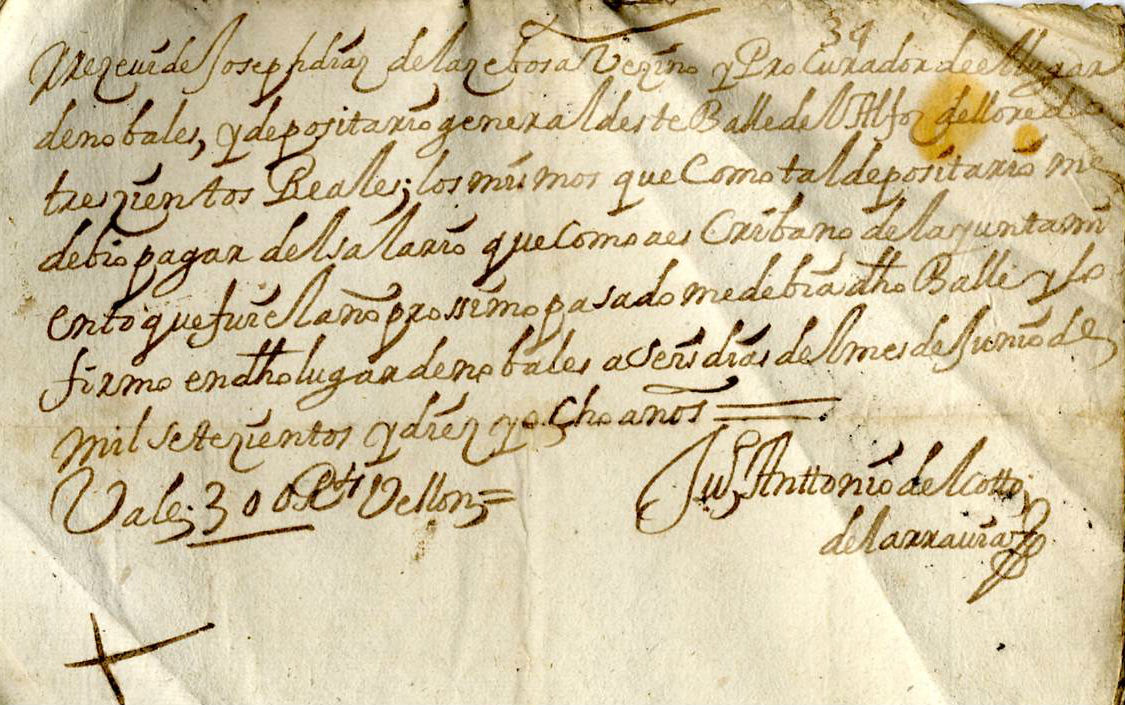 34
Rezeui de Joseph diaz de lazebosa Vezino y Procurador de el lugar
de nobales, y depositario general deste Balle del Alfoz de lloredo
trezientos Reales; los mismos que Como tal depositario me
debio pagar del salario que Como aes Cribano de la yuntami
ento que fui el año prossimo pasado me debia dho Balle y lo
firmo en dho lugar de nobales a Seis dias del mes de Junio de
mil setezientos y diez y o Cho años =
Vale; 300 Rs Vellon =
Ju Anttonio del Cotto
de la rrauia